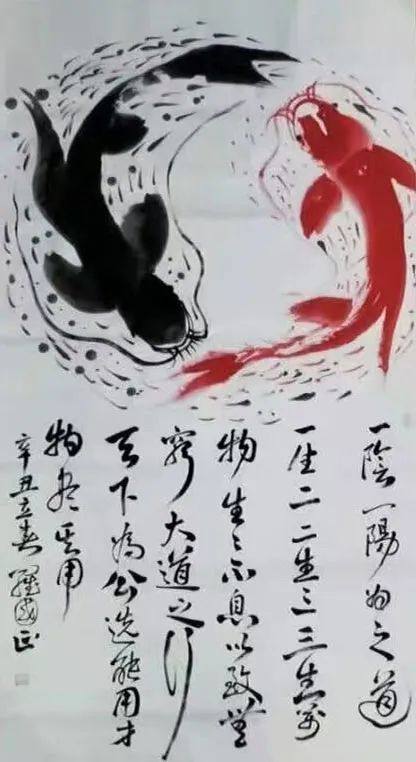 一陰一陽为之道
一生二二生三三生萬
物生生不息以致無
窮大道之行
天下為公选能用才
物尽其用
辛丑立春 羅國正